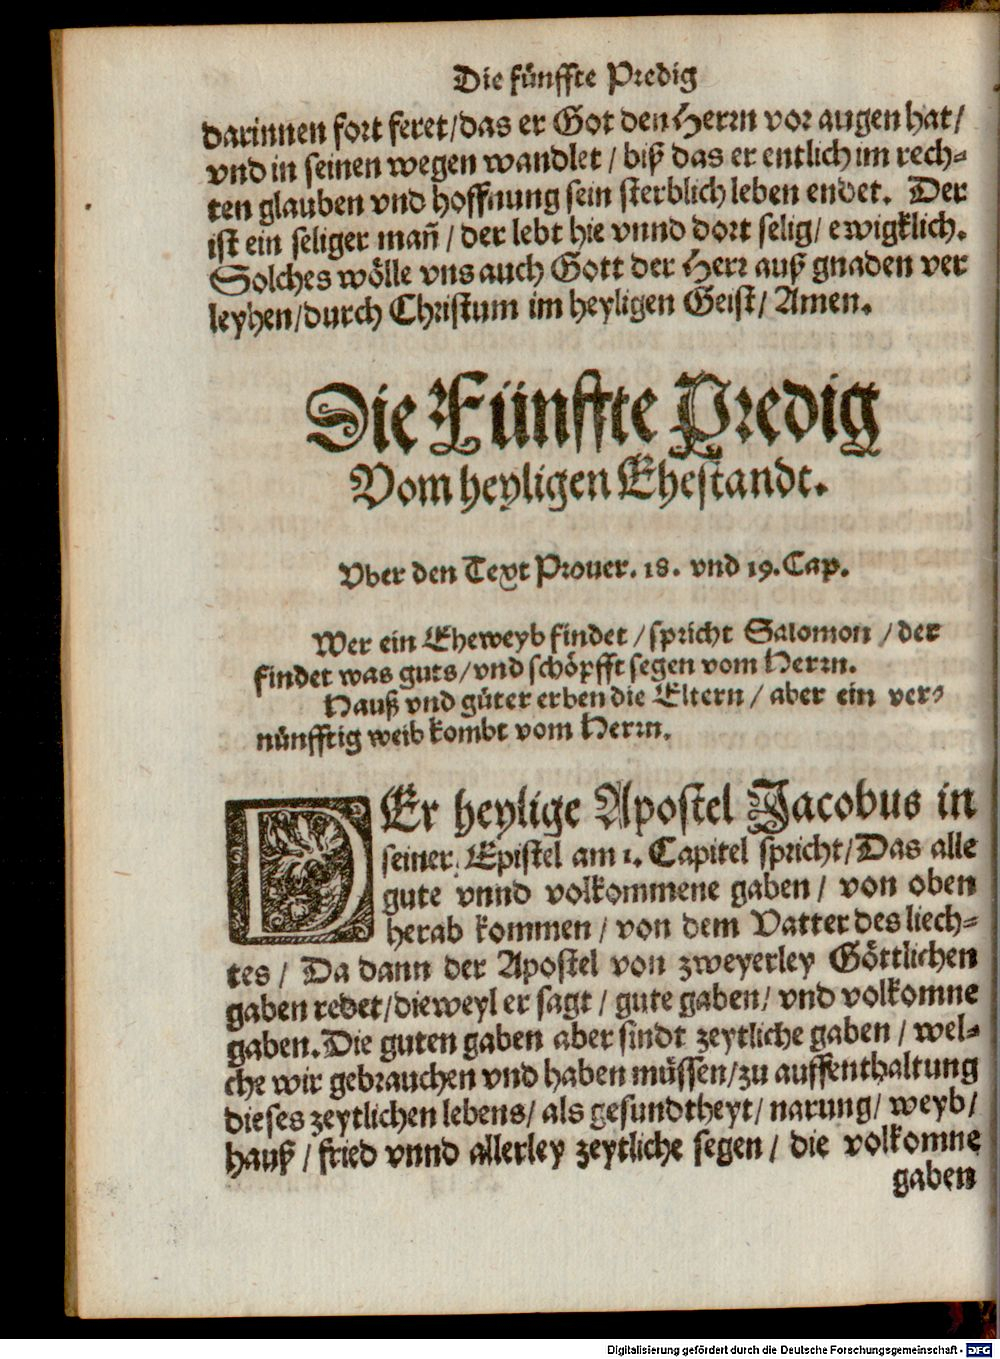 Die fünffte Predig
darinnen fort feret/das er Got den Herrn vor augen hat/
vnd in seinen wegen wandlet / biß das er entlich im rech-
ten glauben vnd hoffnung sein sterblich leben endet. Der
ist ein seliger mañ / der lebt hie vnnd dort selig/ ewigklich.
Solches wölle vns auch Gott der Herr auß gnaden ver
leyhen/durch Christum im heyligen Geist/ Amen.
Die Fünffte Predig
Vom heyligen Ehestandt.
Vber den Text Prouer. 18. vnd 19. Cap.
Wer ein Eheweyb findet / spricht Salomon / der
findet was guts/vnd schöpfft segen vom Herrn.
Hauß vnd güter erben die Eltern / aber ein ver-
nünfftig weib kombt vom Herrn.
DEr heylige Apostel Jacobus in
seiner Epistel am 1. Capitel spricht/Das alle
gute vnnd volkommene gaben / von oben
herab kommen / von dem Vatter des liech-
tes / Da dann der Apostel von zweyerley Göttlichen
gaben redet/dieweyl er sagt / gute gaben/ vnd volkomne
gaben. Die guten gaben aber sindt zeytliche gaben / wel-
che wir gebrauchen vnd haben müssen/zu auffenthaltung
dieses zeytlichen lebens/ als gesundtheyt/ narung/ weyb/
hauß / fried vnnd allerley zeytliche segen / die volkomne
gaben
Digitalisierung gefördert durch die Deutsche Forschungsgemeinschaft - DFG